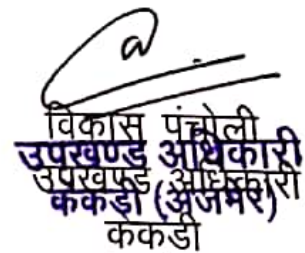 विकास पंचोली
उपखण्ड अधिकारी
उपखण्ड अधिकारी
केकड़ी (अजमेर)
केकडी